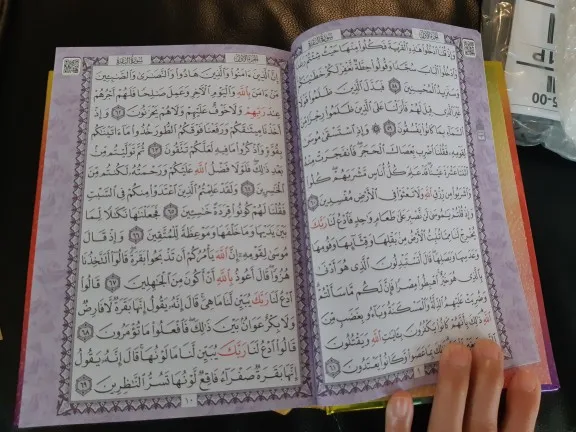 سُورَةُ البَقَرَةِ
وَإِذْ قُلْنَا ادْخُلُوا هَٰذِهِ الْقَرْيَةَ فَكُلُوا مِنْهَا حَيْثُ شِئْتُمْ
وَادْخُلُوا الْبَابَ سُجَّدًا وَقُولُوا حِطَّةٌ نَّغْفِرْ لَكُمْ خَطَايَاكُمْ
وَسَنَزِيدُ الْمُحْسِنِينَ ٥٨ فَبَدَّلَ الَّذِينَ ظَلَمُوا قَوْلًا
غَيْرَ الَّذِي قِيلَ لَهُمْ فَأَنزَلْنَا عَلَى الَّذِينَ ظَلَمُوا رِجْزًا مِّنَ
السَّمَاءِ بِمَا كَانُوا يَفْسُقُونَ ٥٩ وَإِذِ اسْتَسْقَىٰ مُوسَىٰ
لِقَوْمِهِ فَقُلْنَا اضْرِب بِّعَصَاكَ الْحَجَرَ فَانفَجَرَتْ مِنْهُ
اثْنَتَا عَشْرَةَ عَيْنًا قَدْ عَلِمَ كُلُّ أُنَاسٍ مَّشْرَبَهُمْ كُلُوا
وَاشْرَبُوا مِن رِّزْقِ اللَّهِ وَلَا تَعْثَوْا فِي الْأَرْضِ مُفْسِدِينَ ٦٠
وَإِذْ قُلْتُمْ يَٰمُوسَىٰ لَن نَّصْبِرَ عَلَىٰ طَعَامٍ وَٰحِدٍ فَادْعُ لَنَا رَبَّكَ
يُخْرِجْ لَنَا مِمَّا تُنبِتُ الْأَرْضُ مِن بَقْلِهَا وَقِثَّائِهَا وَفُومِهَا
وَعَدَسِهَا وَبَصَلِهَا قَالَ أَتَسْتَبْدِلُونَ الَّذِي هُوَ أَدْنَىٰ
بِالَّذِي هُوَ خَيْرٌ اهْبِطُوا مِصْرًا فَإِنَّ لَكُم مَّا سَأَلْتُمْ
وَضُرِبَتْ عَلَيْهِمُ الذِّلَّةُ وَالْمَسْكَنَةُ وَبَاءُو بِغَضَبٍ مِّنَ
اللَّهِ ذَٰلِكَ بِأَنَّهُمْ كَانُوا يَكْفُرُونَ بِـَٔايَٰتِ اللَّهِ وَيَقْتُلُونَ
عَصَوا وَّكَانُوا يَعْتَدُونَ ٦١
سُورَةُ البَقَرَةِ
إِنَّ الَّذِينَ ءَامَنُوا وَالَّذِينَ هَادُوا وَالنَّصَٰرَىٰ وَالصَّٰبِـِٔينَ
مَنْ ءَامَنَ بِاللَّهِ وَالْيَوْمِ الْءَاخِرِ وَعَمِلَ صَٰلِحًا فَلَهُمْ أَجْرُهُمْ
عِندَ رَبِّهِمْ وَلَا خَوْفٌ عَلَيْهِمْ وَلَا هُمْ يَحْزَنُونَ ٦٢ وَإِذْ
أَخَذْنَا مِيثَٰقَكُمْ وَرَفَعْنَا فَوْقَكُمُ الطُّورَ خُذُوا مَا ءَاتَيْنَٰكُم
بِقُوَّةٍ وَاذْكُرُوا مَا فِيهِ لَعَلَّكُمْ تَتَّقُونَ ٦٣ ثُمَّ تَوَلَّيْتُم مِّن
بَعْدِ ذَٰلِكَ فَلَوْلَا فَضْلُ اللَّهِ عَلَيْكُمْ وَرَحْمَتُهُ لَكُنتُم مِّنَ
الْخَٰسِرِينَ ٦٤ وَلَقَدْ عَلِمْتُمُ الَّذِينَ اعْتَدَوْا مِنكُمْ فِي السَّبْتِ
فَقُلْنَا لَهُمْ كُونُوا قِرَدَةً خَٰسِـِٔينَ ٦٥ فَجَعَلْنَٰهَا نَكَٰلًا لِّمَا
بَيْنَ يَدَيْهَا وَمَا خَلْفَهَا وَمَوْعِظَةً لِّلْمُتَّقِينَ ٦٦ وَإِذْ قَالَ
مُوسَىٰ لِقَوْمِهِ إِنَّ اللَّهَ يَأْمُرُكُمْ أَن تَذْبَحُوا بَقَرَةً قَالُوا أَتَتَّخِذُنَا
هُزُوًا قَالَ أَعُوذُ بِاللَّهِ أَنْ أَكُونَ مِنَ الْجَٰهِلِينَ ٦٧ قَالُوا
ادْعُ لَنَا رَبَّكَ يُبَيِّن لَّنَا مَا هِيَ قَالَ إِنَّهُ يَقُولُ إِنَّهَا بَقَرَةٌ لَّا فَارِضٌ
وَلَا بِكْرٌ عَوَانٌ بَيْنَ ذَٰلِكَ فَافْعَلُوا مَا تُؤْمَرُونَ ٦٨
قَالُوا ادْعُ لَنَا رَبَّكَ يُبَيِّن لَّنَا مَا لَوْنُهَا قَالَ إِنَّهُ يَقُولُ
إِنَّهَا بَقَرَةٌ صَفْرَاءُ فَاقِعٌ لَّوْنُهَا تَسُرُّ النَّٰظِرِينَ ٦٩
١٠